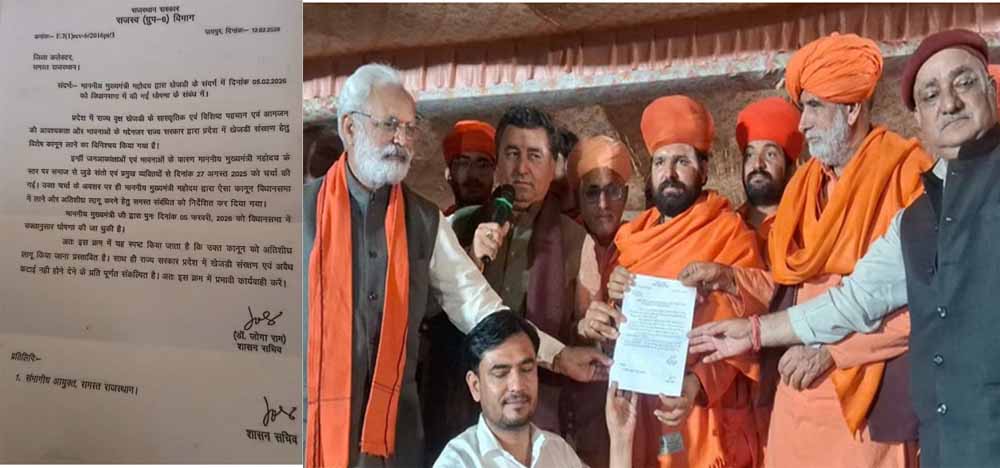 राजस्थान सरकार
राजस्व (ग्रुप-6) विभाग
क्रमांकः- F.3(1)rev-6/2016pt/3 जयपुर, दिनांकः- 12.02.2026
जिला कलेक्टर,
समस्त राजस्थान।
संदर्भः- माननीय मुख्यमंत्री महोदय द्वारा खेजडी के संदर्भ में दिनांक 05.02.2026
को विधानसभा में की गई घोषणा के संबंध में।
प्रदेश में राज्य वृक्ष खेजडी के सांस्कृतिक एवं विशिष्ट पहचान एवं आमजन
की आवश्यकता और भावनाओं के मद्देनजर राज्य सरकार द्वारा प्रदेश में खेजडी संरक्षण हेतु
विशेष कानून लाने का विनिश्चय किया गया है।
इन्हीं जनआकांक्षाओं एवं भावनाओं के कारण माननीय मुख्यमंत्री महोदय के
स्तर पर समाज से जुडे संतो एवं प्रमुख व्यक्तियों से दिनांक 27 अगस्त 2025 को चर्चा की
गई। उक्त चर्चा के अवसर पर ही माननीय मुख्यमंत्री महोदय द्वारा ऐसा कानून विधानसभा
में लाने और अतिशीघ्र लागू करने हेतु समस्त संबंधित को निर्देशित कर दिया गया।
माननीय मुख्यमंत्री जी द्वारा पुनः दिनांक 05 फरवरी, 2026 को विधानसभा में
उक्तानुसार घोषणा की जा चुकी है।
अतः इस क्रम में यह स्पष्ट किया जाता है कि उक्त कानून को अतिशीघ्र
लागू किया जाना प्रस्तावित है। साथ ही राज्य सरकार प्रदेश में खेजडी संरक्षण एवं अवैध
कटाई नहीं होने देने के प्रति पूर्णत संकल्पित है। अतः इस क्रम में प्रभावी कार्यवाही करें।
(डॉ. जोगा राम)
शासन सचिव
प्रतिलिपिः-
1. संभागीय आयुक्त, समस्त राजस्थान।
शासन सचिव